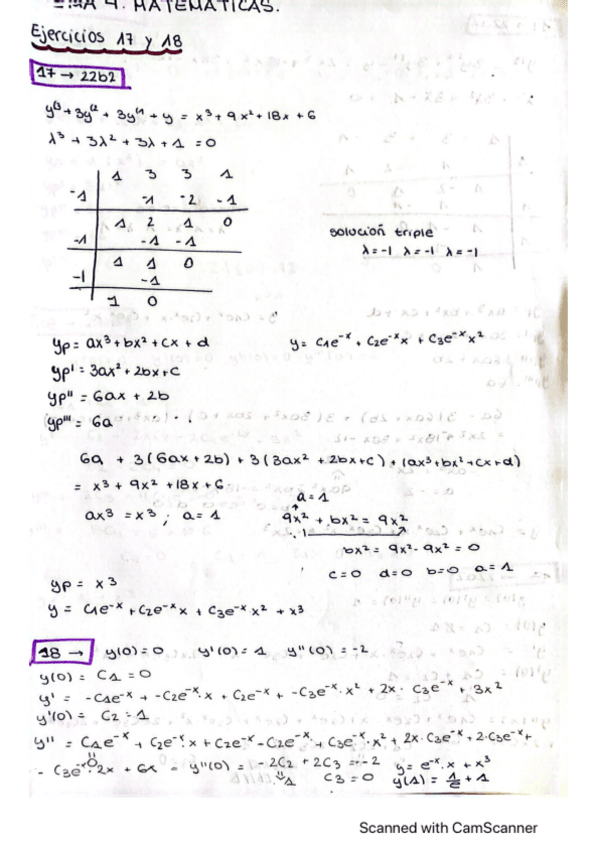 4. MATEMÁTICAS.
Ejercicios 17 y 18
17 → 22b2
y''' + 3y'' + 3y' + y = x³ + 9x² + 18x + 6
λ³ + 3λ² + 3λ + 1 = 0
1 3 3 1
-1 -1 -2 -1
1 2 1 0
-1 -1 -1
solución triple
λ=-1 λ=-1 λ=-1
1 1 0
-1 -1
1 0
yp = ax³ + bx² + cx + d
y = C1e⁻ˣ + C2e⁻ˣx + C3e⁻ˣx²
yp' = 3ax² + 2bx + c
yp'' = 6ax + 2b
yp''' = 6a
6a + 3(6ax + 2b) + 3(3ax² + 2bx + c) + (ax³ + bx² + cx + d)
= x³ + 9x² + 18x + 6
a = 1
ax³ = x³ ; a = 1
9x² + bx² = 9x²
bx² = 9x² - 9x² = 0
c = 0 d = 0 b = 0 a = 1
yp = x³
y = C1e⁻ˣ + C2e⁻ˣx + C3e⁻ˣx² + x³
18 → y(0) = 0 y'(0) = 1 y''(0) = -2
y(0) = C1 = 0
y' = -C1e⁻ˣ + -C2e⁻ˣ·x + C2e⁻ˣ + -C3e⁻ˣ·x² + 2x·C3e⁻ˣ + 3x²
y'(0) = C2 = 1
y'' = C1e⁻ˣ + C2e⁻ˣx + C2e⁻ˣ - C2e⁻ˣ + C3e⁻ˣ·x² + 2x·C3e⁻ˣ + 2·C3e⁻ˣ +
- C3e⁻ˣ·2x + 6x = y''(0) = -2C2 + 2C3 = -2
y = e⁻ˣ·x + x³
1
C3 = 0
y(1) = 1/e + 1
Scanned with CamScanner